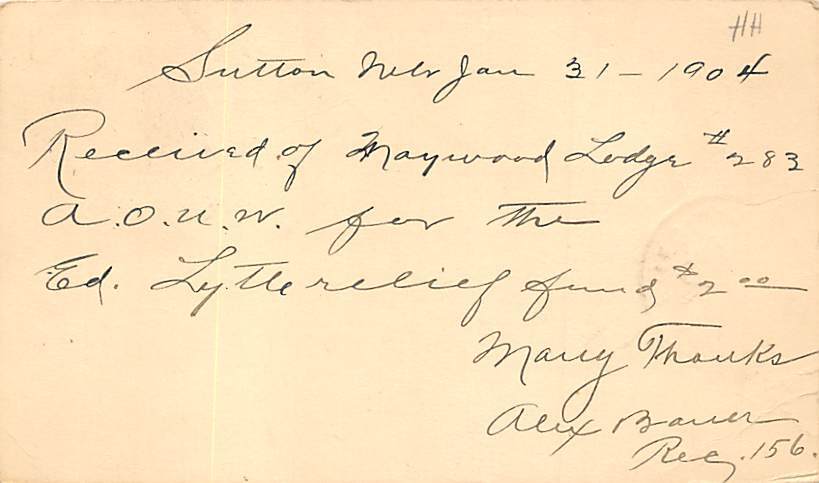 HH
Sutton Nebr Jan 31 - 1904
Received of Maywood Lodge #283
A.O.U.W. for the
Ed. Lytle relief fund $2.00
Many Thanks
Alex Bauer
Rec. 156.